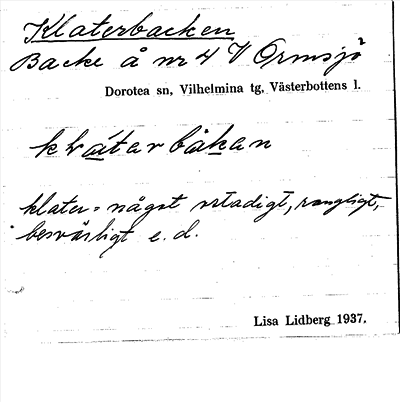 Klaterbacken
Backe å nr 4 V Ormsjö
Dorotea sn, Vilhelmina tg, Västerbottens l.
klåtarbàkan
klater = något ostadigt, rangligt,
besvärligt e. d.
Lisa Lidberg 1937.